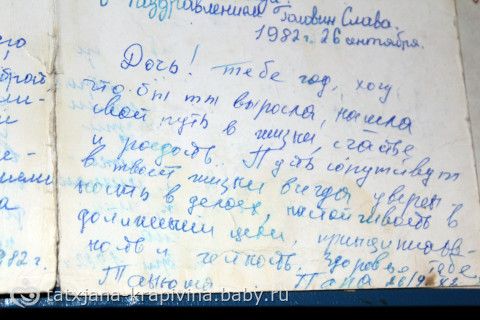 с поздравлением Головин Слава.
1982 г. 26 сентября.
Дочь! тебе год, хочу
что бы ты выросла, нашла
свой путь в жизни, счастье
и радость. Пусть сопутствует
в твоей жизни всегда уверен-
ность в делах, настойчивость в
должении цели, принципиаль-
ность и чёткость. Здоровья тебе
Танюша Папа 26/9 82
982 г.
tatxjana-krapivina.baby.ru